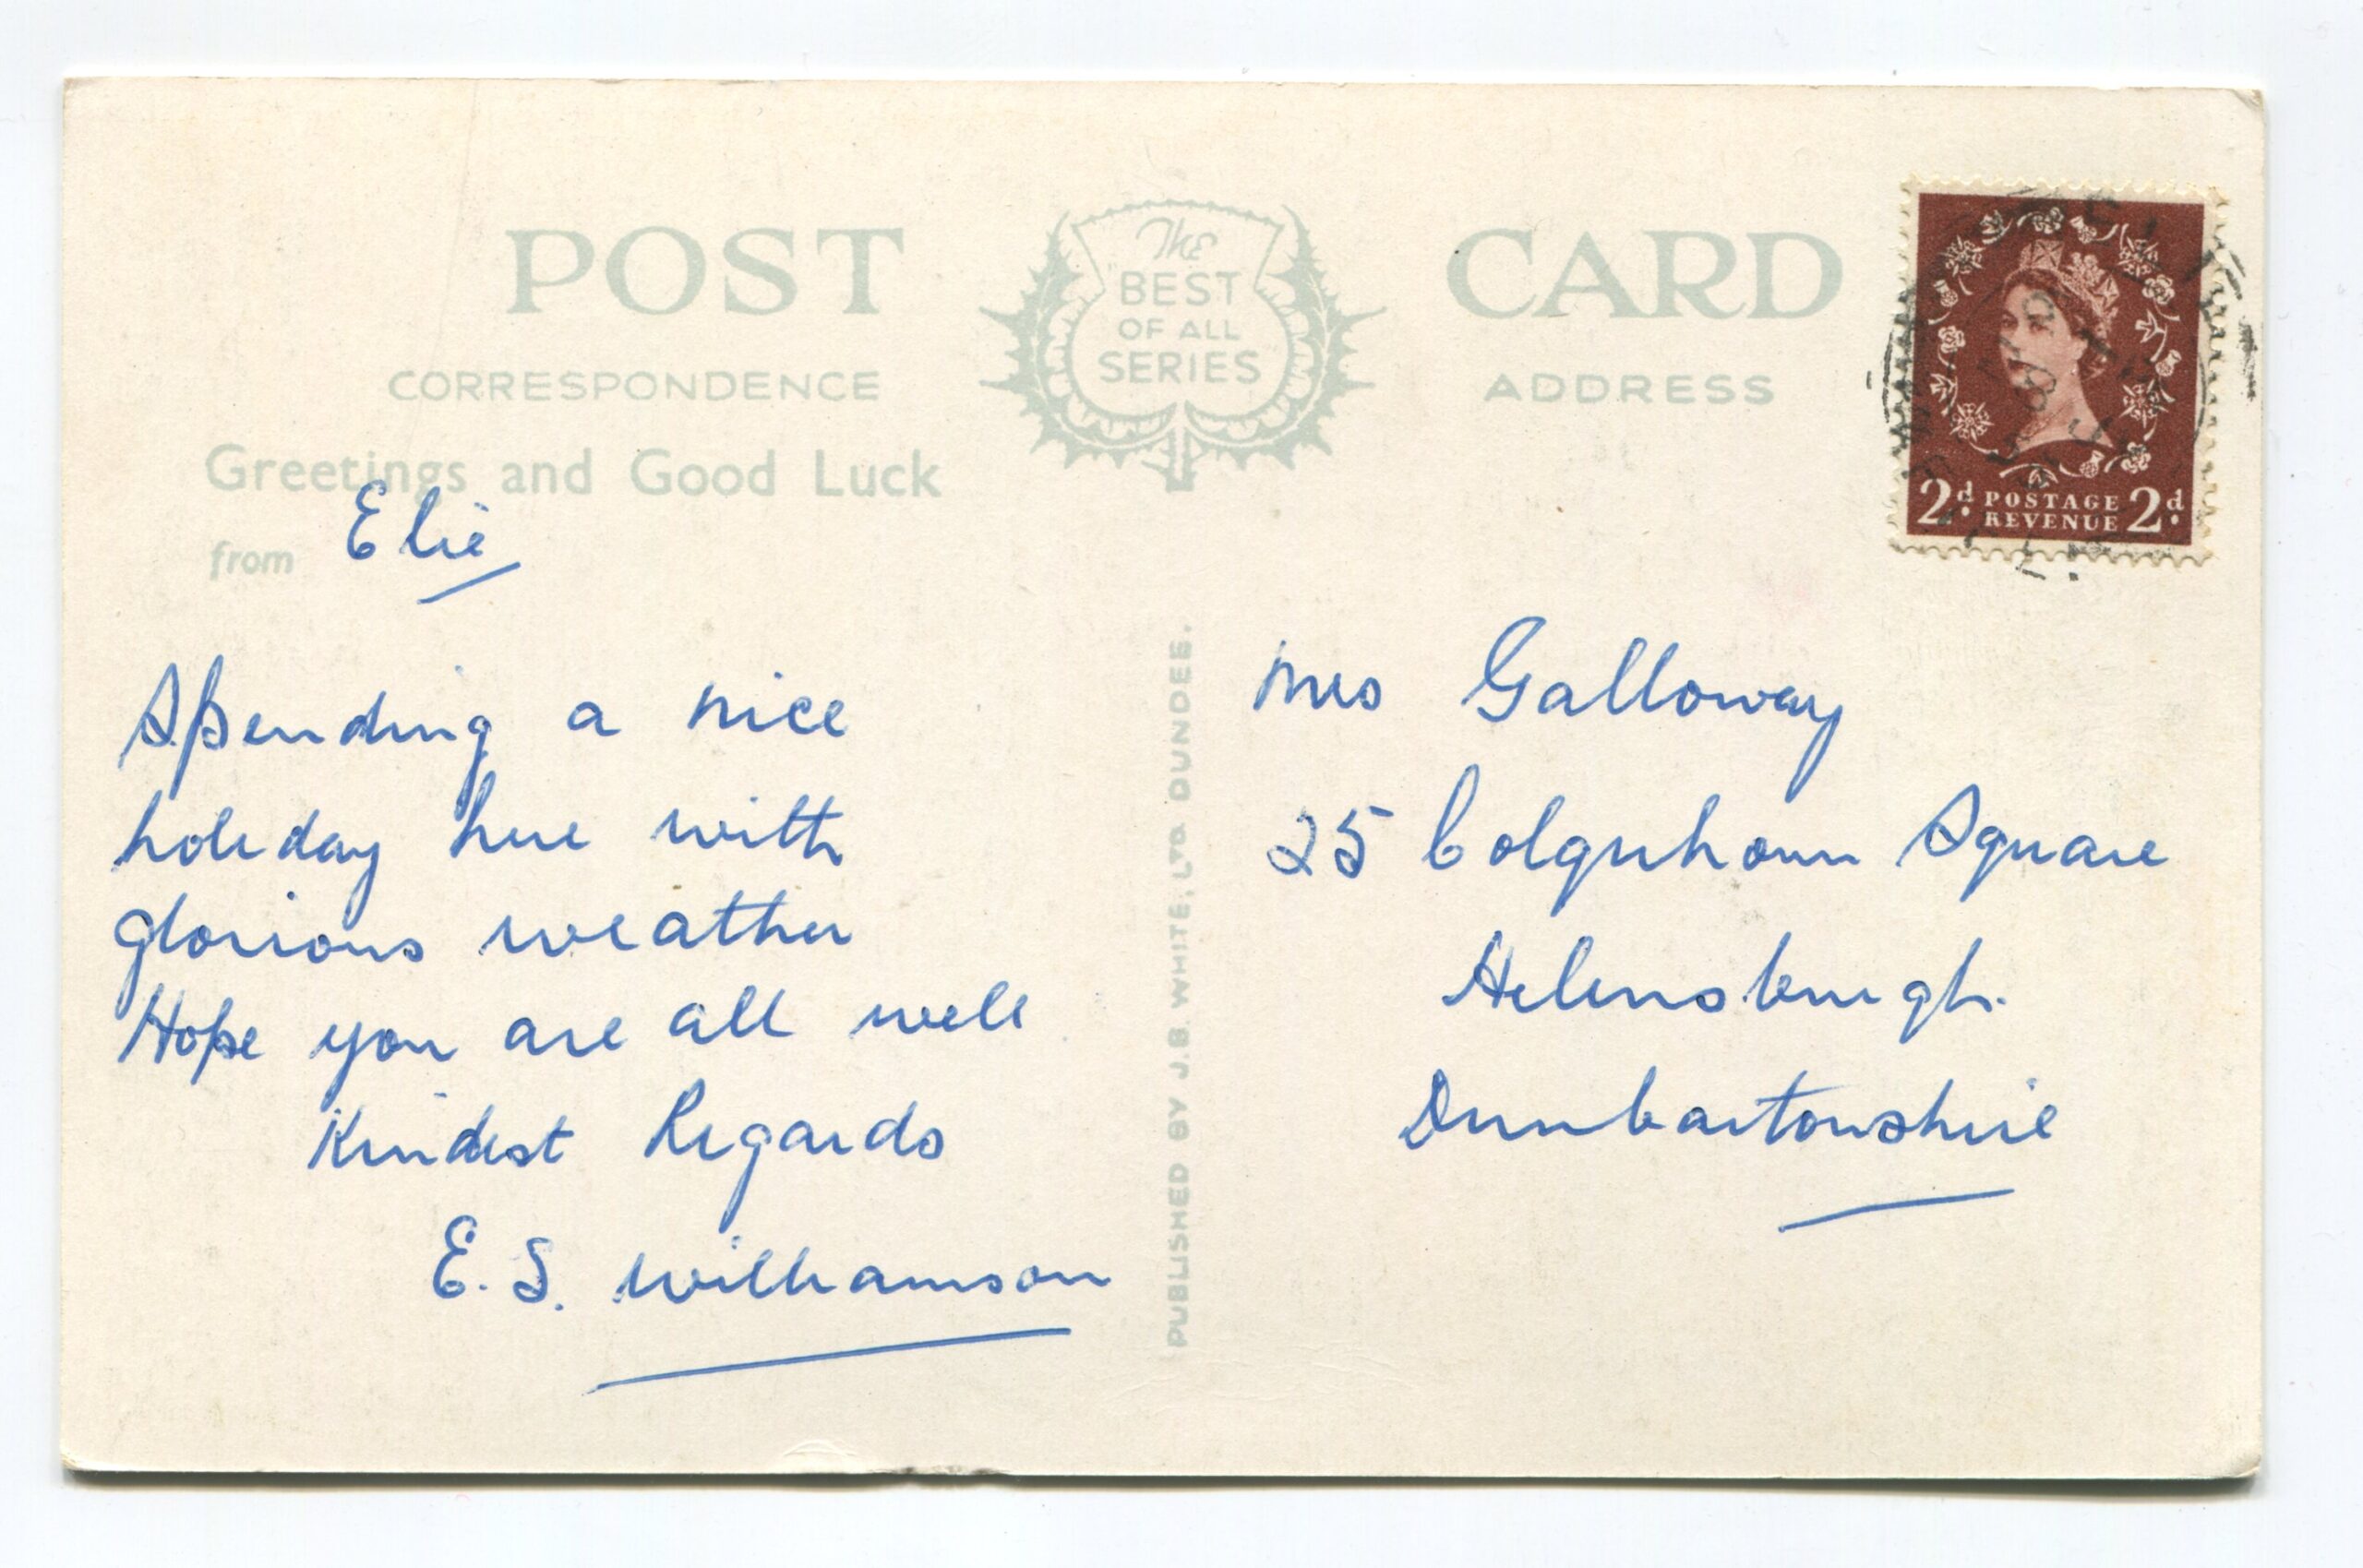 POST
The
BEST
OF ALL
SERIES
CARD
CORRESPONDENCE
ADDRESS
Greetings and Good Luck
from Elie
Spending a nice
holiday here with
glorious weather
Hope you are all well
Kindest Regards
E. S. Williamson
PUBLISHED BY J.B. WHITE, LTD DUNDEE.
2d POSTAGE 2d
REVENUE
Mrs Galloway
25 Colquhoun Square
Helensburgh.
Dunbartonshire